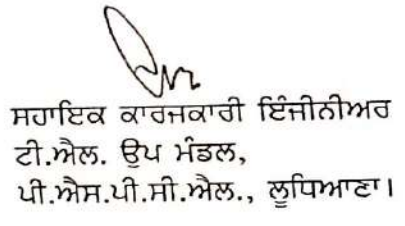 ਸਹਾਇਕ ਕਾਰਜਕਾਰੀ ਇੰਜੀਨੀਅਰ
ਟੀ.ਐਲ. ਉਪ ਮੰਡਲ,
ਪੀ.ਐਸ.ਪੀ.ਸੀ.ਐਲ., ਲੁਧਿਆਣਾ।